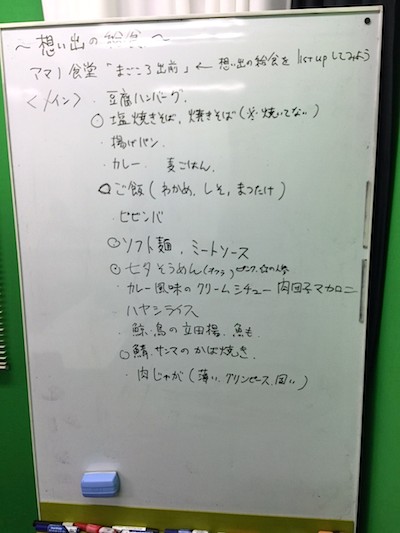 ～想い出の給食～
アマノ食堂「まごころ出前」← 想い出の給食を list upしてみよう
〈メイン〉・豆腐ハンバーグ.
○塩焼きそば, 焼きそば(※焼いてない)
・揚げパン
・カレー. 麦ごはん.
○ご飯(わかめ, しそ, まつたけ)
・ビビンバ
○ソフト麺, ミートソース
○七夕そうめん(オクラ)
・カレー風味のクリームシチュー 肉団子マカロニ
・ハヤシライス
・鯨・鳥の立田揚. 魚も
○鯖・サンマのかば焼き.
・肉じゃが(薄い, グリンピース, 固い)